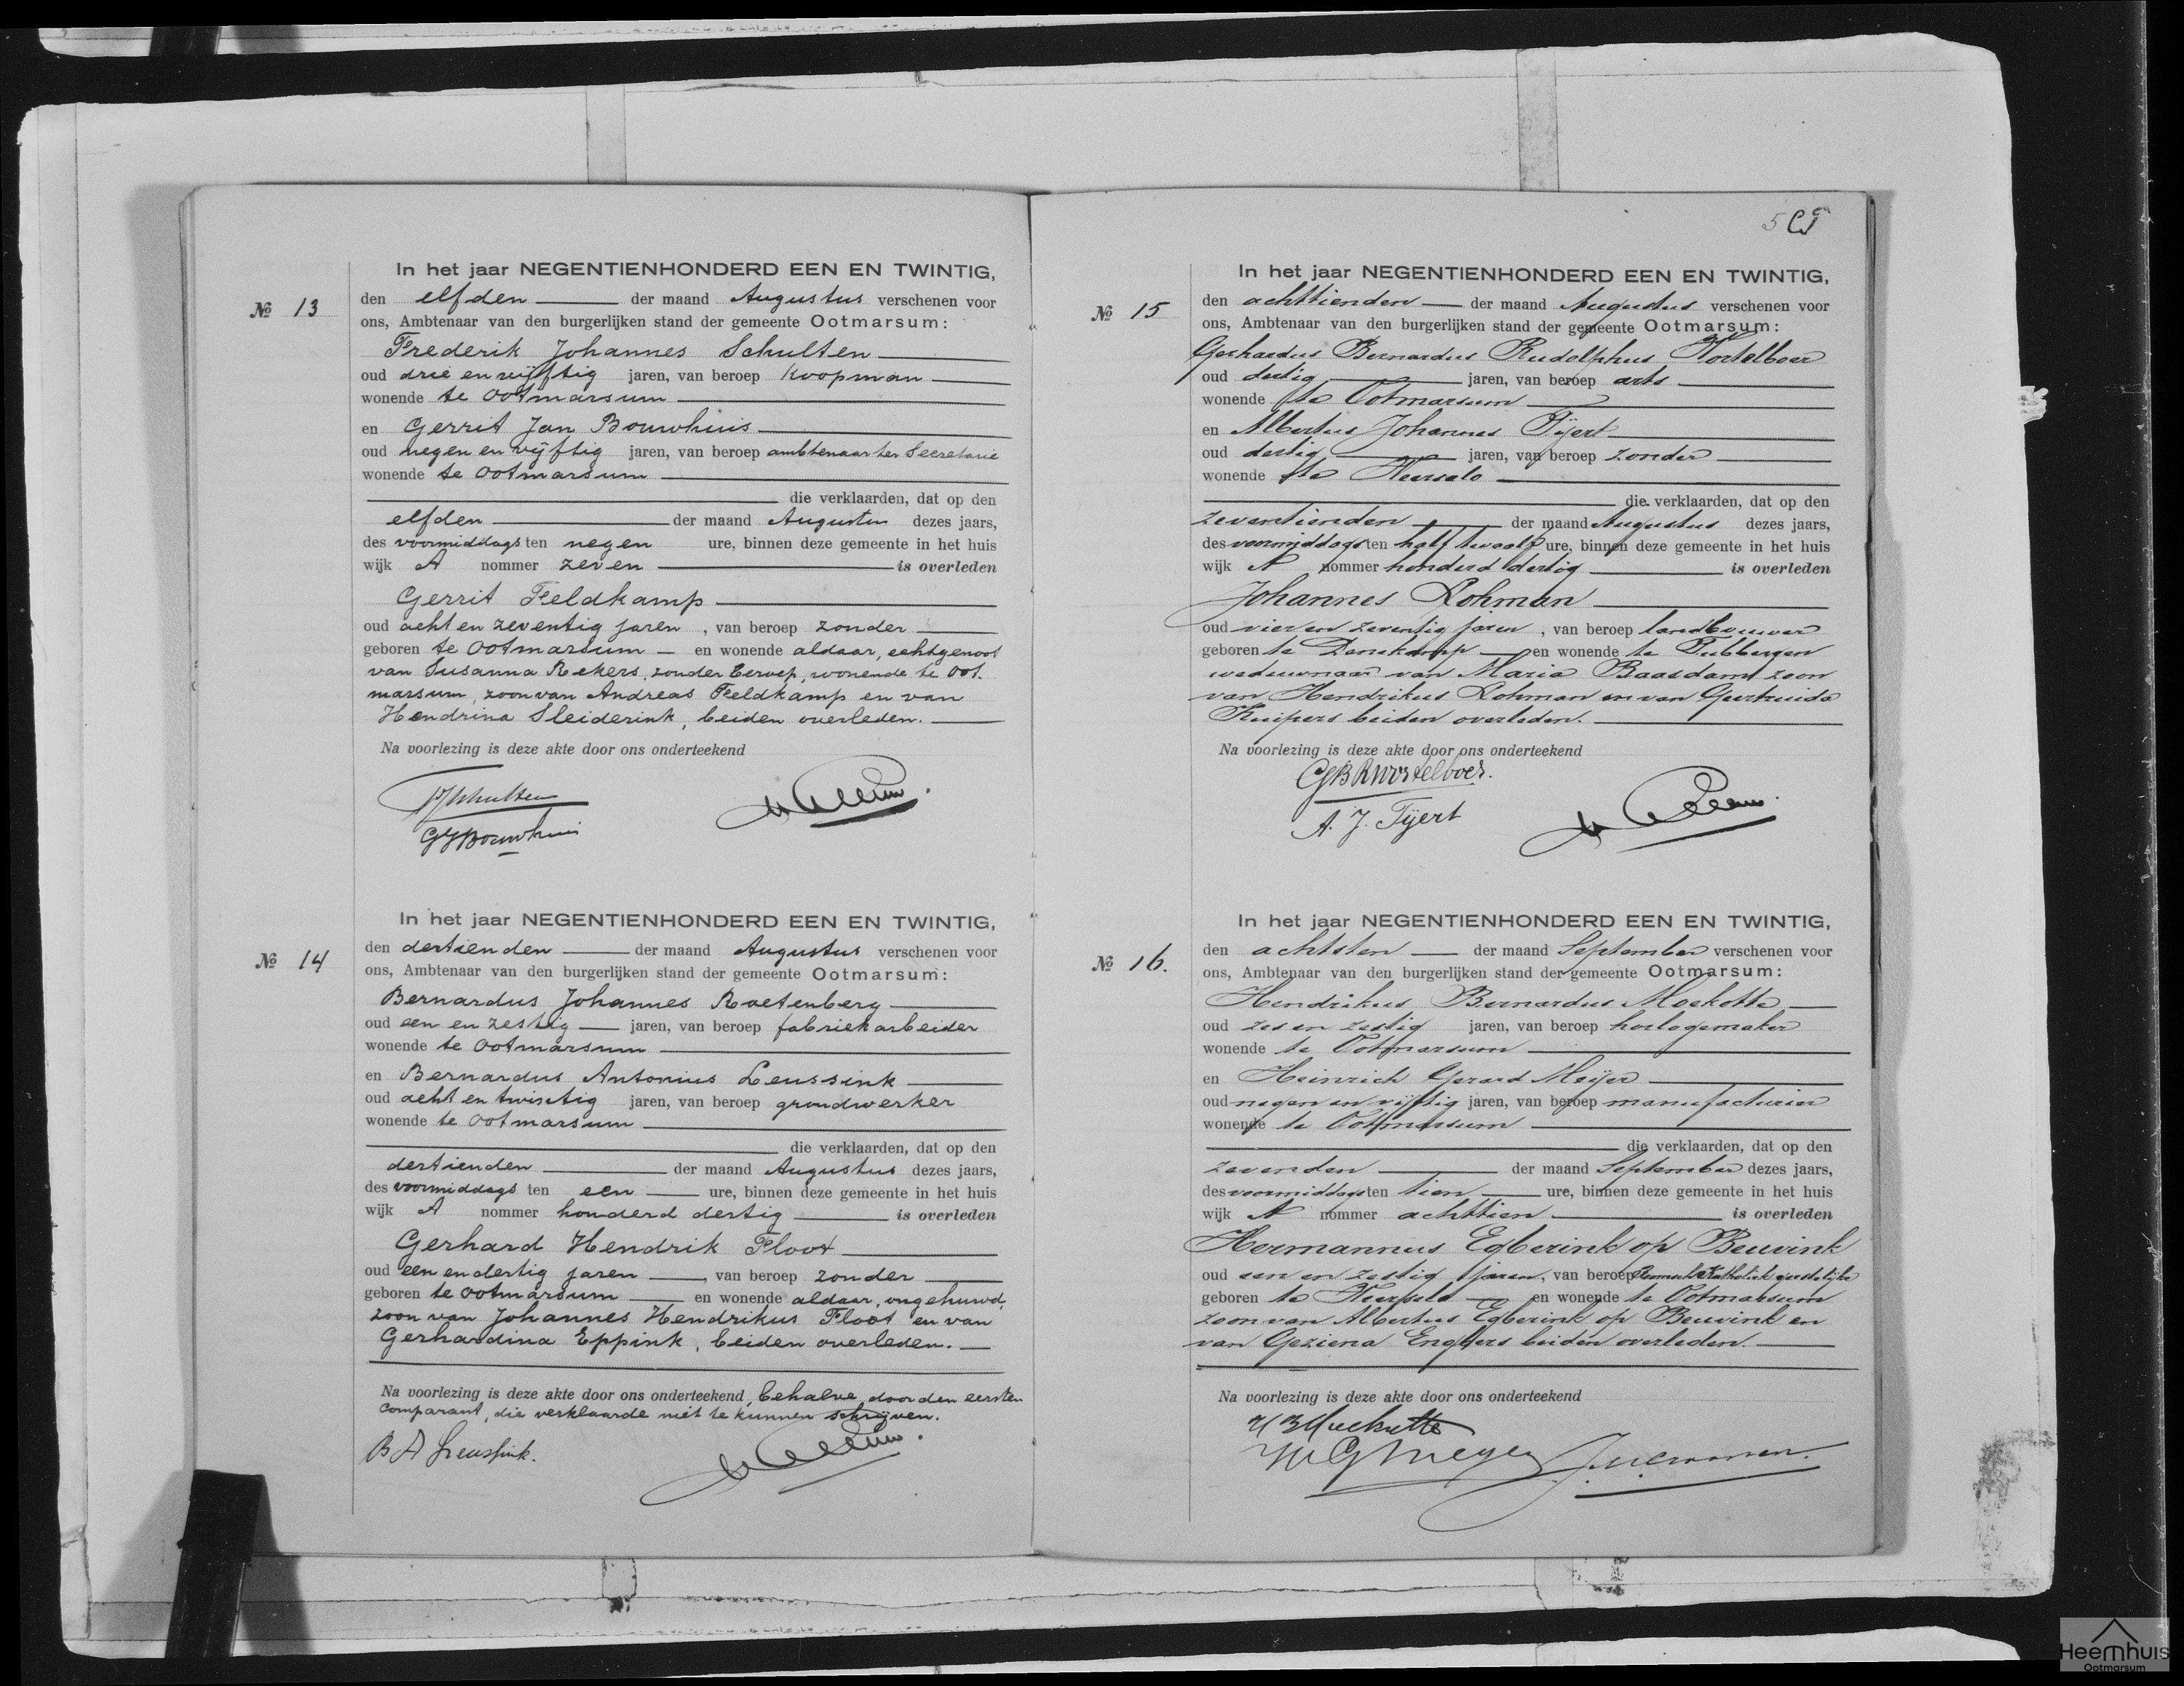 In het jaar NEGENTIENHONDERD EEN EN TWINTIG,
№ 13
den elfden der maand Augustus verschenen voor
ons, Ambtenaar van den burgerlijken stand der gemeente Ootmarsum:
Frederik Johannes Schulten
oud drie en vijftig jaren, van beroep koopman
wonende te Ootmarsum
en Gerrit Jan Bouwhuis
oud negen en vijftig jaren, van beroep ambtenaar ter Secretarie
wonende te Ootmarsum
die verklaarden, dat op den
elfden der maand Augustus dezes jaars,
des voormiddags ten negen ure, binnen deze gemeente in het huis
wijk A nommer zeven is overleden
Gerrit Feldkamp
oud acht en zeventig jaren, van beroep zonder
geboren te Ootmarsum en wonende aldaar, echtgenoot
van Susanna Rekers, zonder beroep, wonende te Oot.
marsum, zoon van Andreas Feldkamp en van
Hendrina Sleiderink, beiden overleden.
Na voorlezing is deze akte door ons onderteekend
FJSchulten
GJBouwhuis
In het jaar NEGENTIENHONDERD EEN EN TWINTIG,
№ 14
den dertienden der maand Augustus verschenen voor
ons, Ambtenaar van den burgerlijken stand der gemeente Ootmarsum:
Bernardus Johannes Roetenberg
oud een en zestig jaren, van beroep fabriekarbeider
wonende te Ootmarsum
en Bernardus Antonius Leussink
oud acht en twintig jaren, van beroep grondwerker
wonende te Ootmarsum
die verklaarden, dat op den
dertienden der maand Augustus dezes jaars,
des voormiddags ten een ure, binnen deze gemeente in het huis
wijk A nommer honderd dertig is overleden
Gerhard Hendrik Floot
oud een en dertig jaren, van beroep zonder
geboren te Ootmarsum en wonende aldaar, ongehuwd,
zoon van Johannes Hendrikus Floot en van
Gerhardina Eppink, beiden overleden.
Na voorlezing is deze akte door ons onderteekend, behalve door den eersten
comparant, die verklaarde niet te kunnen schrijven.
B A Leussink.
5
In het jaar NEGENTIENHONDERD EEN EN TWINTIG,
№ 15
den achttienden der maand Augustus verschenen voor
ons, Ambtenaar van den burgerlijken stand der gemeente Ootmarsum:
Gerhardus Bernardus Rudolphus Wortelboer
oud dertig jaren, van beroep arts
wonende te Ootmarsum
en Albertus Johannes Tijert
oud dertig jaren, van beroep zonder
wonende te Weerselo
die verklaarden, dat op den
zeventienden der maand Augustus dezes jaars,
des voormiddags ten half twaalf ure, binnen deze gemeente in het huis
wijk A nommer honderd dertig is overleden
Johannes Lohman
oud vier en zeventig jaren, van beroep landbouwer
geboren te Denekamp en wonende te Tubbergen
weduwnaar van Maria Baasdam zoon
van Hendrikus Lohman en van Geertruida
Kuipers beiden overleden.
Na voorlezing is deze akte door ons onderteekend
GBRWortelboer.
A. J. Tijert
In het jaar NEGENTIENHONDERD EEN EN TWINTIG,
№ 16.
den achtsten der maand September verschenen voor
ons, Ambtenaar van den burgerlijken stand der gemeente Ootmarsum:
Hendrikus Bernardus Moekotte
oud zes en zestig jaren, van beroep horlogemaker
wonende te Ootmarsum
en Heinrich Gerard Meijer
oud negen en vijftig jaren, van beroep manufacturier
wonende te Ootmarsum
die verklaarden, dat op den
zevenden der maand September dezes jaars,
des voormiddags ten tien ure, binnen deze gemeente in het huis
wijk A nommer achttien is overleden
Hermannus Egberink op Beuvink
oud een en zestig jaren, van beroep Roomsch Katholiek geestelijke
geboren te Weerselo en wonende te Ootmarsum
zoon van Albertus Egberink op Beuvink en
van Geziena Engbers beiden overleden.
Na voorlezing is deze akte door ons onderteekend
H B Moekotte
HGMeyer
Heemhuis
Ootmarsum